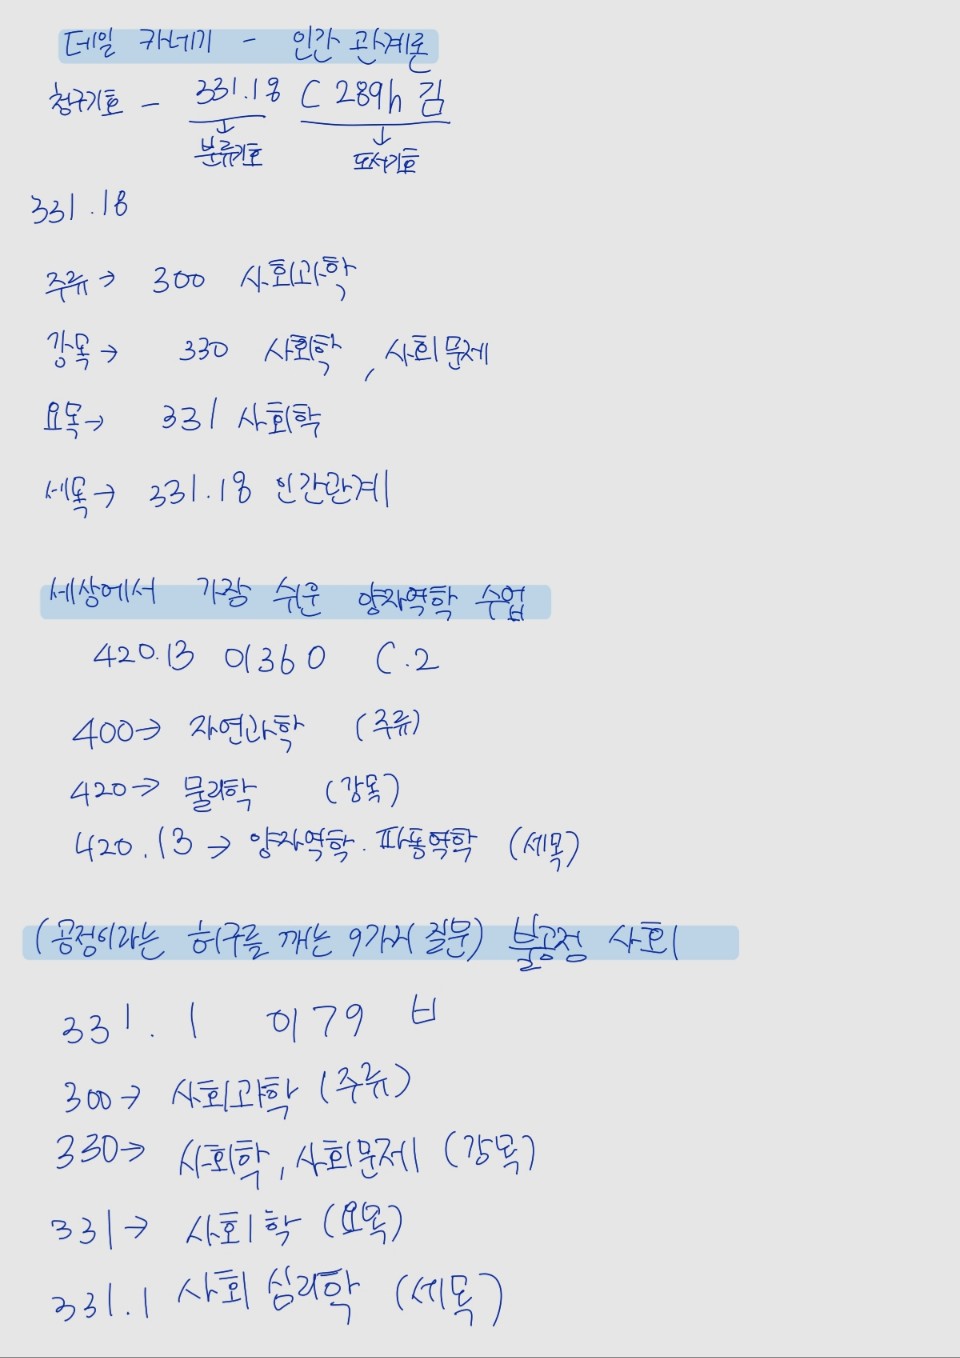 데일 카네기 - 인간 관계론
청구기호 - 331.18 C 289h 김
↓ ↓
분류기호 도서기호
331.18
주류 → 300 사회과학
강목 → 330 사회학, 사회문제
요목 → 331 사회학
세목 → 331.18 인간관계
세상에서 가장 쉬운 양자역학 수업
420.13 이360 C.2
400 → 자연과학 (주류)
420 → 물리학 (강목)
420.13 → 양자역학. 파동역학 (세목)
(공정이라는 허구를 깨는 9가지 질문) 불공정 사회
331.1 이79 ㅂ
300 → 사회과학 (주류)
330 → 사회학, 사회문제 (강목)
331 → 사회학 (요목)
331.1 사회 심리학 (세목)